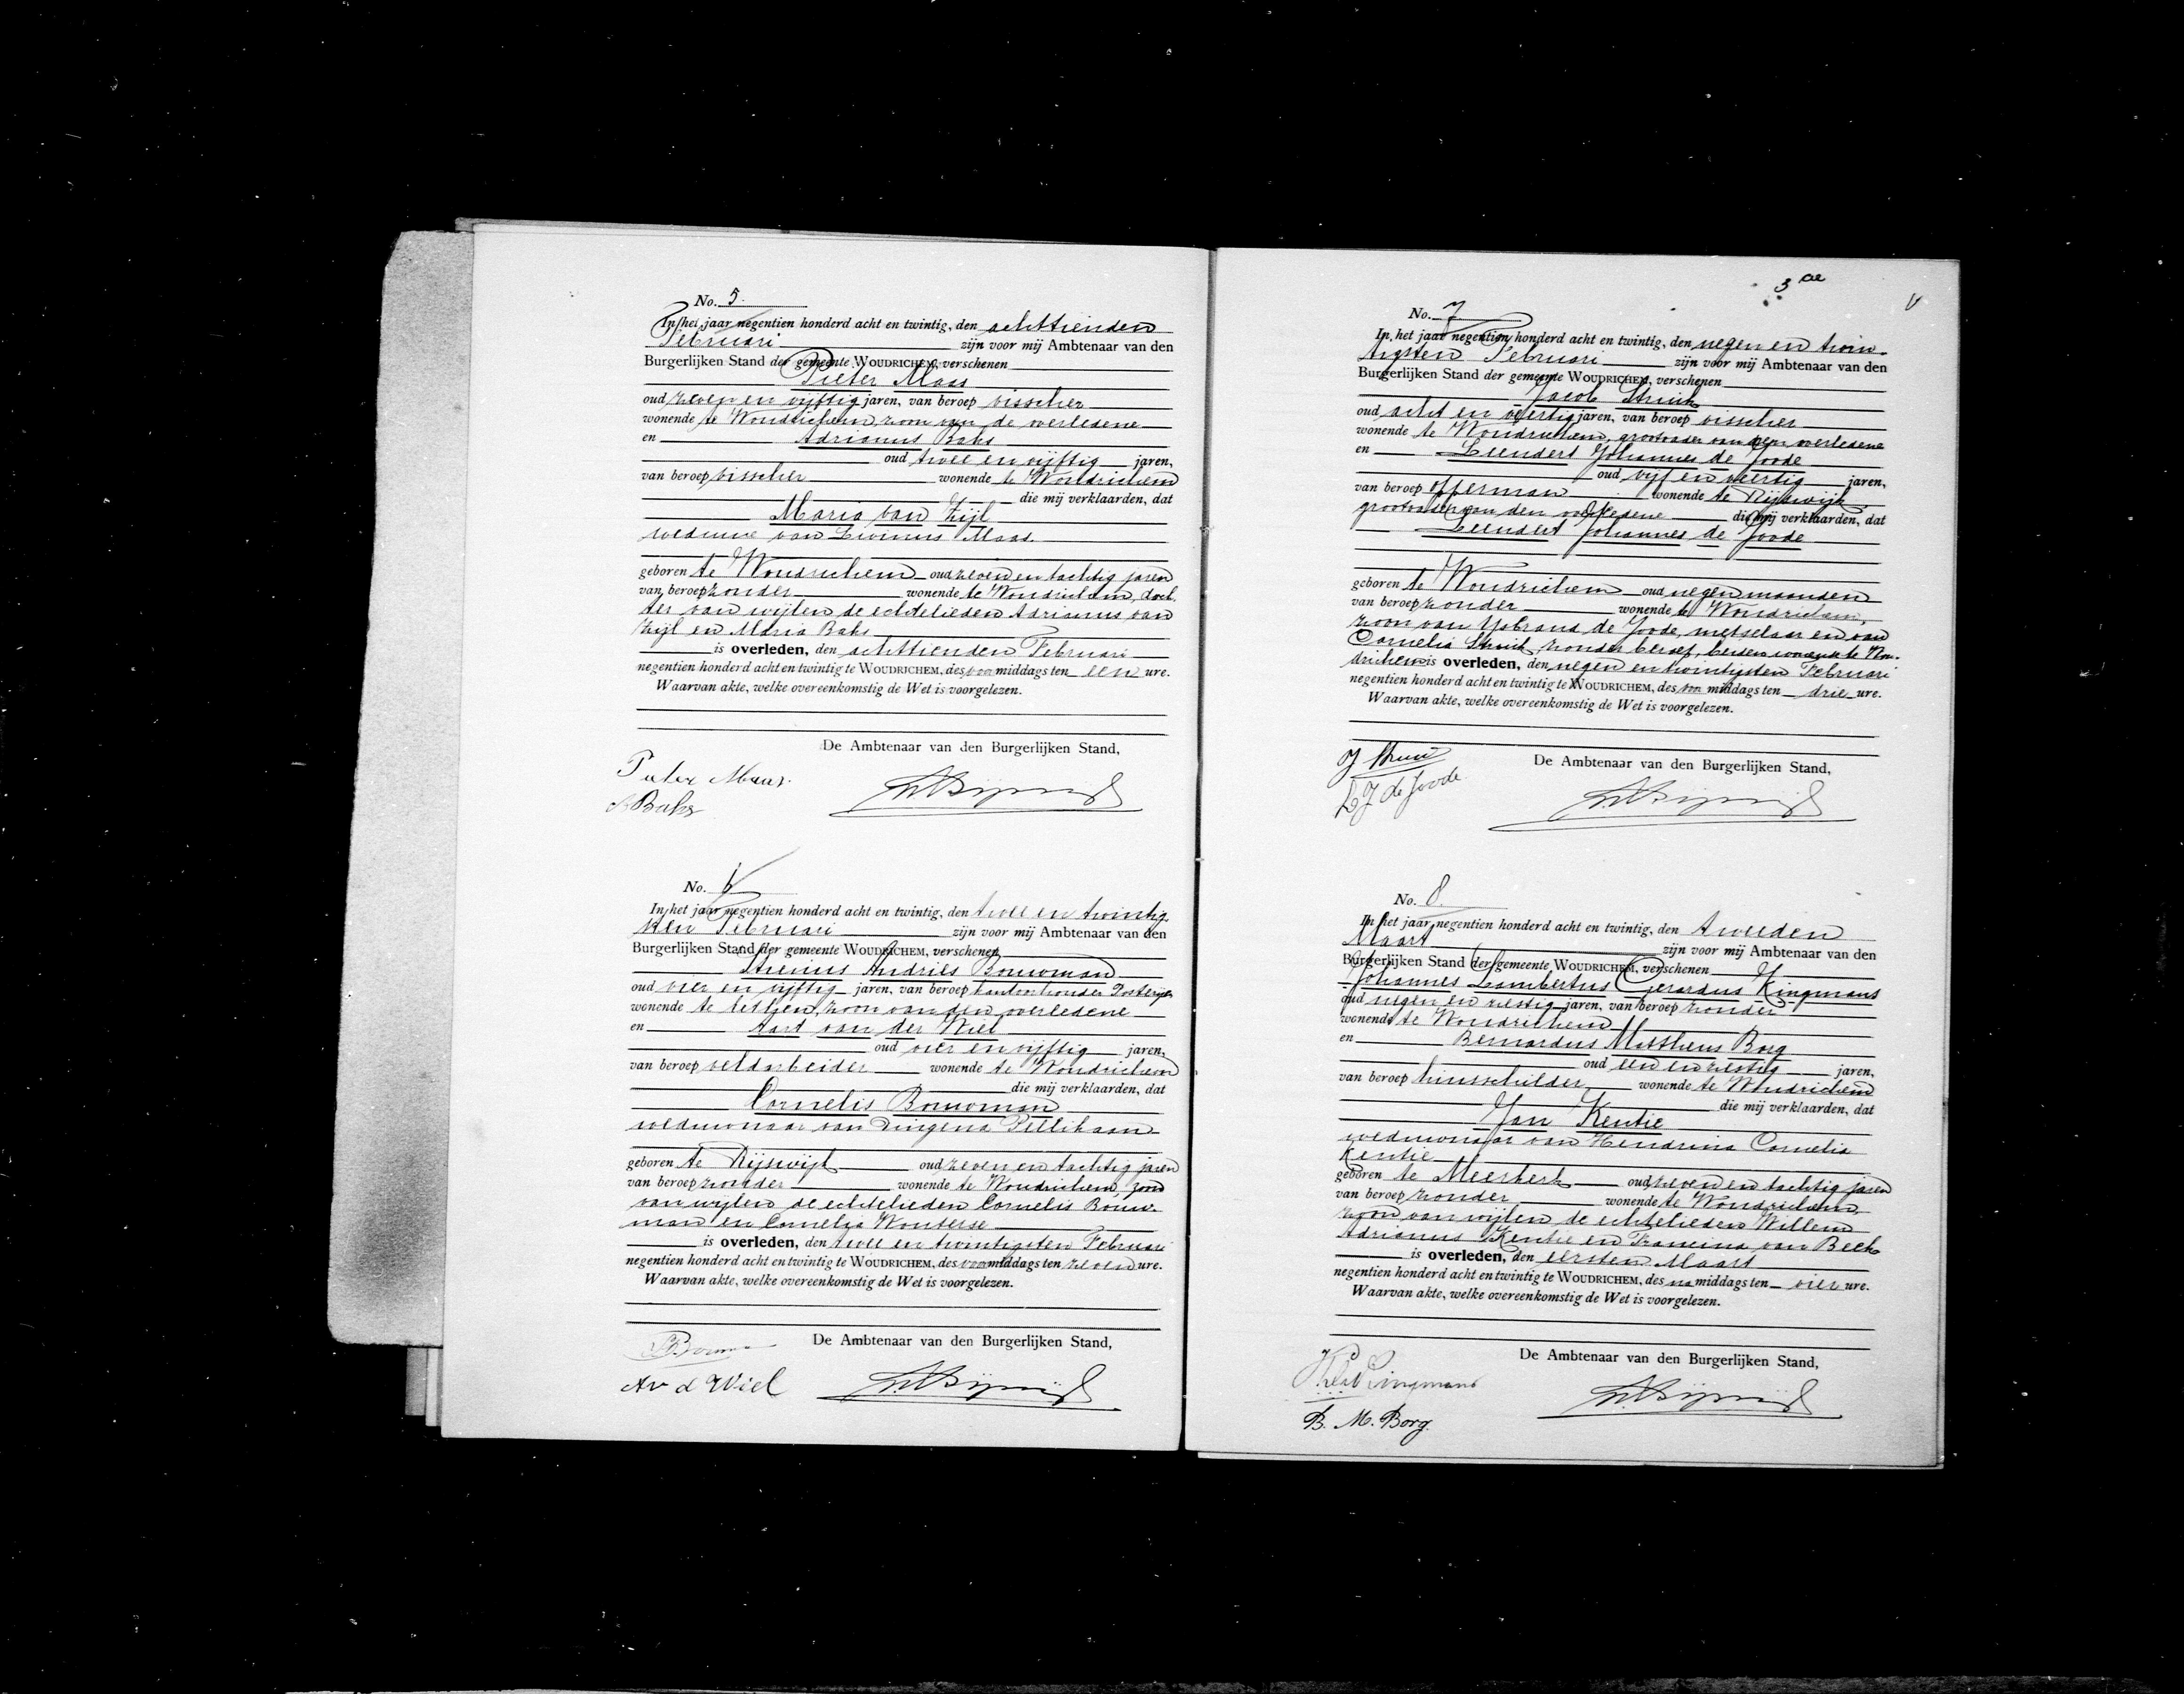 No. 5.
In het jaar negentien honderd acht en twintig, den achttienden
Februari zijn voor mij Ambtenaar van den
Burgerlijken Stand der gemeente WOUDRICHEM, verschenen
Pieter Maas
oud zeven en vijftig jaren, van beroep visscher
wonende te Woudrichem, zoon van de overledene
en Adrianus Baks
oud twee en vijftig jaren,
van beroep visscher wonende te Woudrichem
die mij verklaarden, dat
Maria van Zijl
weduwe van Livinus Maas
geboren te Woudrichem oud zeven en tachtig jaren
van beroep zonder wonende te Woudrichem, doch
ter van wijlen de echtelieden Adrianus van
Zijl en Maria Baks
is overleden, den achttienden Februari
negentien honderd acht en twintig te WOUDRICHEM, des voormiddags ten een ure.
Waarvan akte, welke overeenkomstig de Wet is voorgelezen.
De Ambtenaar van den Burgerlijken Stand,
Pieter Maas.
A Baks
No. 6
In het jaar negentien honderd acht en twintig, den twee en twintig
sten Februari zijn voor mij Ambtenaar van den
Burgerlijken Stand der gemeente WOUDRICHEM, verschenen
Andries Bouwman
oud vier en vijftig jaren, van beroep kantoorhouder Posterijen
wonende te zoon van den overledene
en Aart van der Wiel
oud vier en vijftig jaren,
van beroep veldarbeider wonende te Woudrichem
die mij verklaarden, dat
Cornelis Bouwman
weduwnaar van Dingena Pellikaan
geboren te Rijswijk oud zeven en tachtig jaren
van beroep zonder wonende te Woudrichem, zoon
van wijlen de echtelieden Cornelis Bouw-
man en Cornelia Wouterse
is overleden, den twee en twintigsten Februari
negentien honderd acht en twintig te WOUDRICHEM, des voormiddags ten zeven ure.
Waarvan akte, welke overeenkomstig de Wet is voorgelezen.
De Ambtenaar van den Burgerlijken Stand,
A v d Wiel
3 de
V
No. 7
In het jaar negentien honderd acht en twintig, den negen en twin-
tigsten Februari zijn voor mij Ambtenaar van den
Burgerlijken Stand der gemeente WOUDRICHEM, verschenen
Jacob Struik
oud acht en veertig jaren, van beroep visscher
wonende te Woudrichem, grootvader van den overledene
en Leendert Johannes de Joode
oud vijf en veertig jaren,
van beroep opperman wonende te Rijswijk,
grootvader van den overledene die mij verklaarden, dat
Leendert Johannes de Joode
geboren te Woudrichem oud negen maanden
van beroep zonder wonende te Woudrichem,
zoon van Ysbrand de Joode, metselaar en van
Cornelia Struik, zonder beroep, beiden wonende te Wou-
drichem is overleden, den negen en twintigsten Februari
negentien honderd acht en twintig te WOUDRICHEM, des voormiddags ten drie ure.
Waarvan akte, welke overeenkomstig de Wet is voorgelezen.
De Ambtenaar van den Burgerlijken Stand,
J Struik
L J de Joode
No. 8.
In het jaar negentien honderd acht en twintig, den tweeden
Maart zijn voor mij Ambtenaar van den
Burgerlijken Stand der gemeente WOUDRICHEM, verschenen
Johannes Lambertus Gerardus Kingmans
oud negen en zestig jaren, van beroep zonder
wonende te Woudrichem
en Bernardus Mattheus Borg
oud een en zestig jaren,
van beroep huisschilder wonende te Woudrichem
die mij verklaarden, dat
Jan Kentie
weduwnaar van Hendrina Cornelia
Kentie
geboren te Meerkerk oud zeven en tachtig jaren
van beroep zonder wonende te Woudrichem,
zoon van wijlen de echtelieden Willem
Adrianus Kentie en Francina van Beek
is overleden, den eersten Maart
negentien honderd acht en twintig te WOUDRICHEM, des namiddags ten vier ure.
Waarvan akte, welke overeenkomstig de Wet is voorgelezen.
De Ambtenaar van den Burgerlijken Stand,
Kingmans
B. M. Borg.